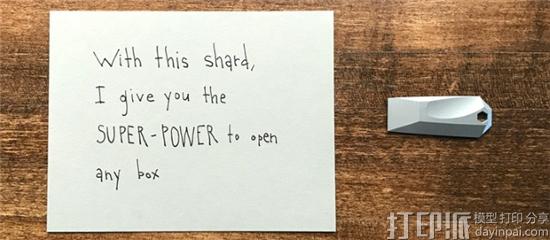 With this shard,
I give you the
SUPER-POWER to open
any box
打印派 模型打印分享
dayinpai.com